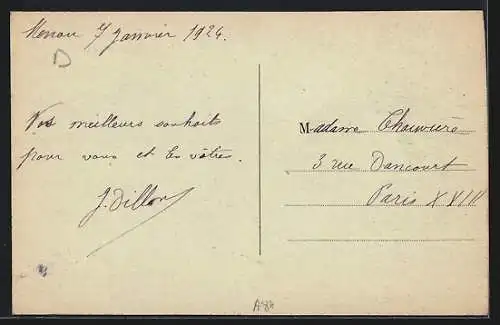 Menou 7 Janvier 1924.
D
Nos meilleurs souhaits
pour vous et les vôtres.
J. Dillon
Madame Chauvière
3 rue Dancourt
Paris XVIII